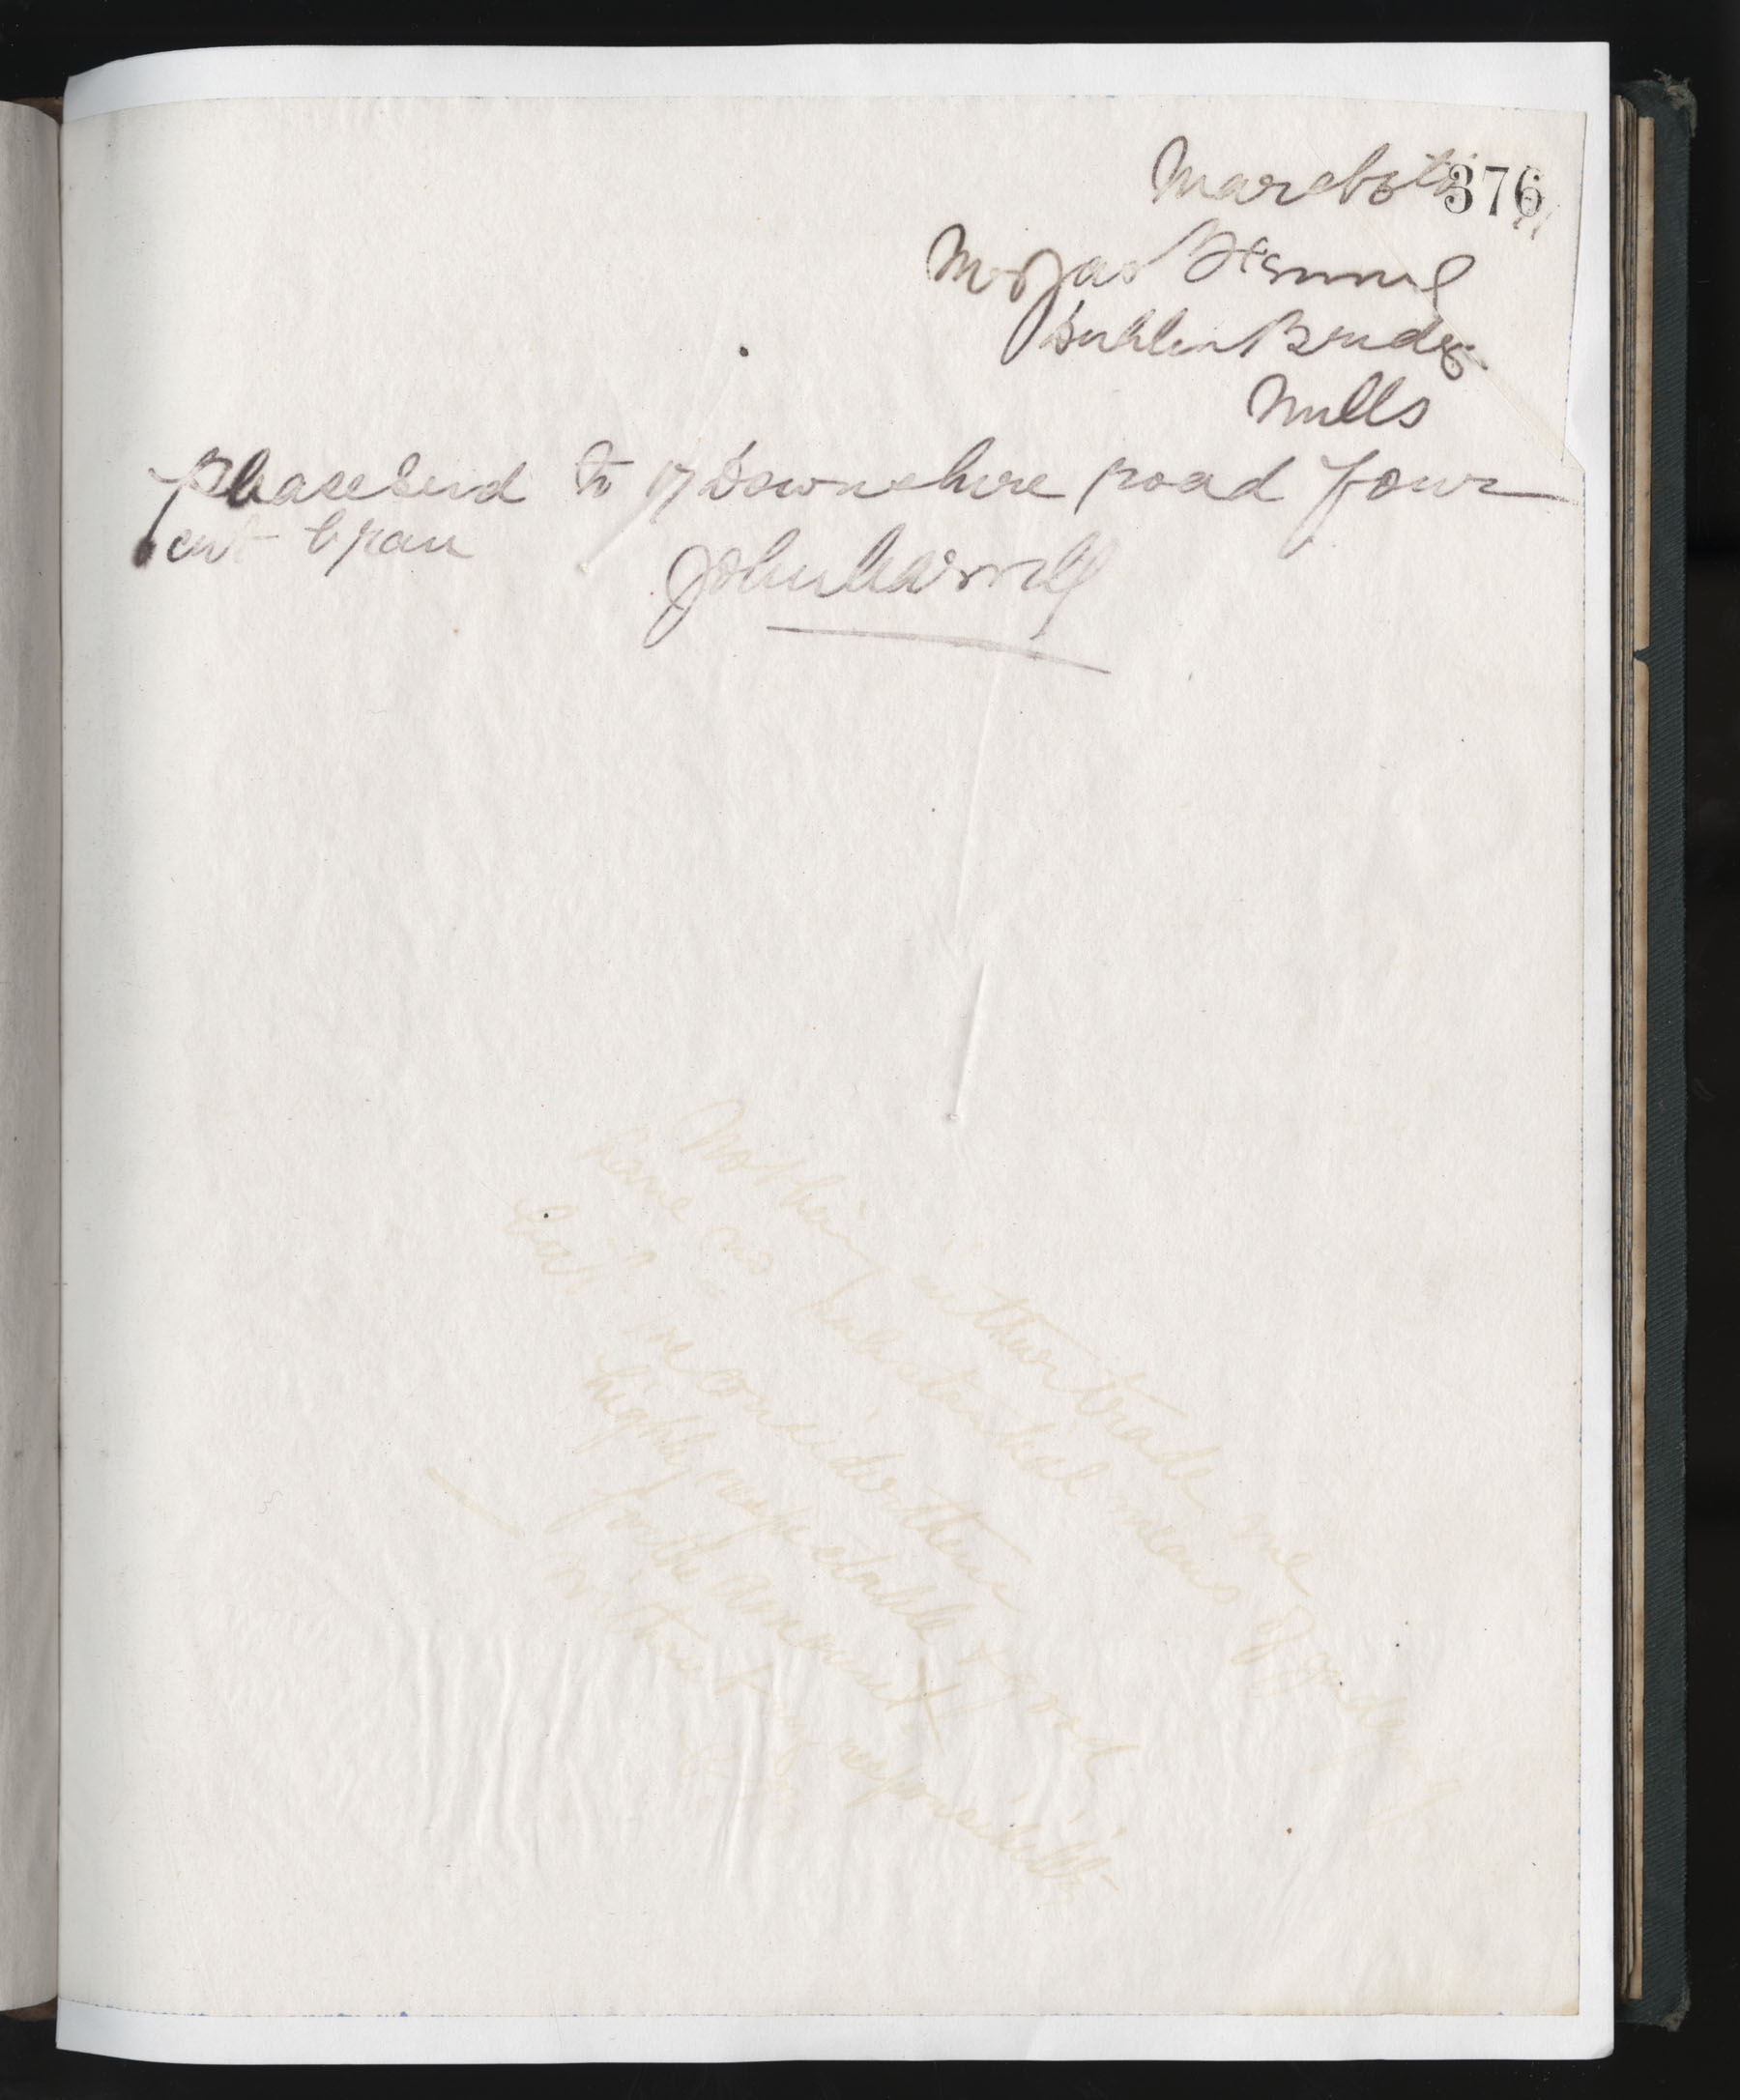 March 6th
376
Mr Jas
Dublin Bridge
Mills
Please Send to 17 Downshire road four
cwt bran
John
Nothing in their trade we
have no substantial means of judging
but we consider them
highly respectable & good
for the amount
without responsibility